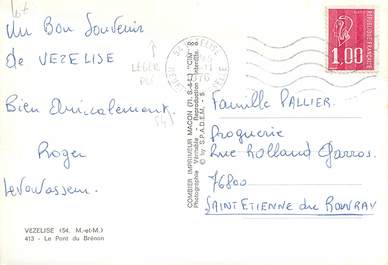 Un Bon Souvenir
de VEZELISE
Bien Amicalement.
Roger
Levavasseur.
VEZELISE (54. M.-et-M.)
413 - Le Pont du Brénon
LEGER
PLI
54
COMBIER IMPRIMEUR MACON (71. S.-&-L.) "CIM"
Photographie Véritable - Reproduction interdite
© by S.P.A.D.E.M. - 5
54 VEZELISE
RÉPUBLIQUE FRANÇAISE
1,00
Famille PALLIER.
Droguerie
Rue Rolland Garros.
76800
SAINT Etienne du Rouvray